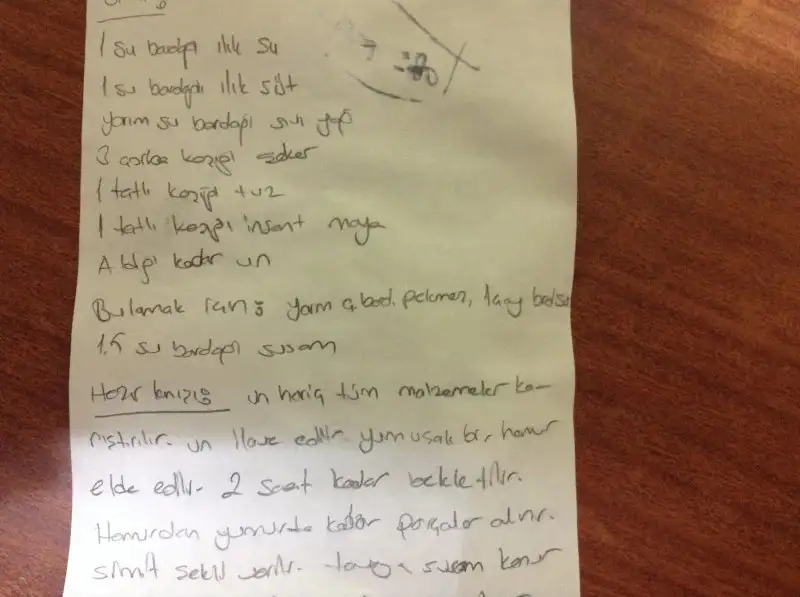 1 su bardağı ılık su
1 su bardağı ılık süt
yarım su bardağı sıvı yağ
3 çorba kaşığı şeker
1 tatlı kaşığı tuz
1 tatlı kaşığı insant maya
Aldığı kadar un
Bulamak için: yarım ç.bard. pekmez, 1 çay bard su
1.5 su bardağı susam
Hazırlanışı: un hariç tüm malzemeler ka-
rıştırılır. un ilave edilir. yumuşak bir hamur
elde edilir. 2 saat kadar bekletilir.
Hamurdan yumurta kadar parçalar alınır.
simit şekli verilir. susam konur